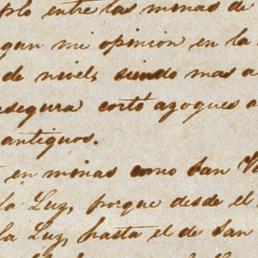 plo entre las minas de
gan mi opinion en la
de nivel, siendo mas a
segura cortó azogues a
antiguos.
en minas como San V
la Luz, porque desde el
la Luz, hasta el de San